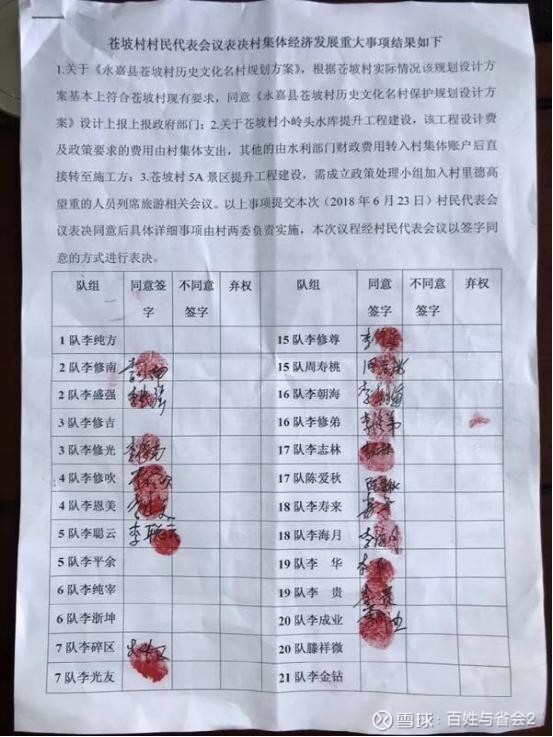 苍坡村村民代表会议表决村集体经济发展重大事项结果如下
1.关于《永嘉县苍坡村历史文化名村规划方案》，根据苍坡村实际情况该规划设计方
案基本上符合苍坡村现有要求，同意《永嘉县苍坡村历史文化名村保护规划设计方
案》设计上报上报政府部门；2.关于苍坡村小岭头水库提升工程建设，该工程设计费
及政策要求的费用由村集体支出，其他的由水利部门财政费用转入村集体账户后直
接转至施工方；3.苍坡村 5A 景区提升工程建设，需成立政策处理小组加入村里德高
望重的人员列席旅游相关会议。以上事项提交本次（2018 年 6 月 23 日）村民代表会
议表决同意后具体详细事项由村两委负责实施，本次议程经村民代表会议以签字同
意的方式进行表决。
队组 同意签字 不同意签字 弃权 队组 同意签字 不同意签字 弃权
1 队李纯方 15 队李修尊
2 队李修南 15 队周寿桃
2 队李盛强 16 队李朝海
3 队李修吉 16 队李修弟
3 队李修光 17 队李志林
4 队李修吹 17 队陈爱秋
4 队李恩美 18 队李寿来
5 队李聪云 李聪云 18 队李海月
5 队李平余 19 队李 华
6 队李纯宰 19 队李 贵
6 队李浙坤 20 队李成业
7 队李碎区 20 队滕祥微
7 队李光友 21 队李金钻
雪球：百姓与省会2